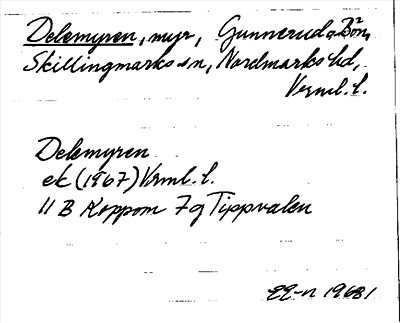 Delemyren, myr, Gunnerud o Bön,
Skillingmarks sn, Nordmarks hd,
Vrml. l.
Delemyren
ek (1967) Vrml. l.
11 B Koppom 7g Tippvalen
1968